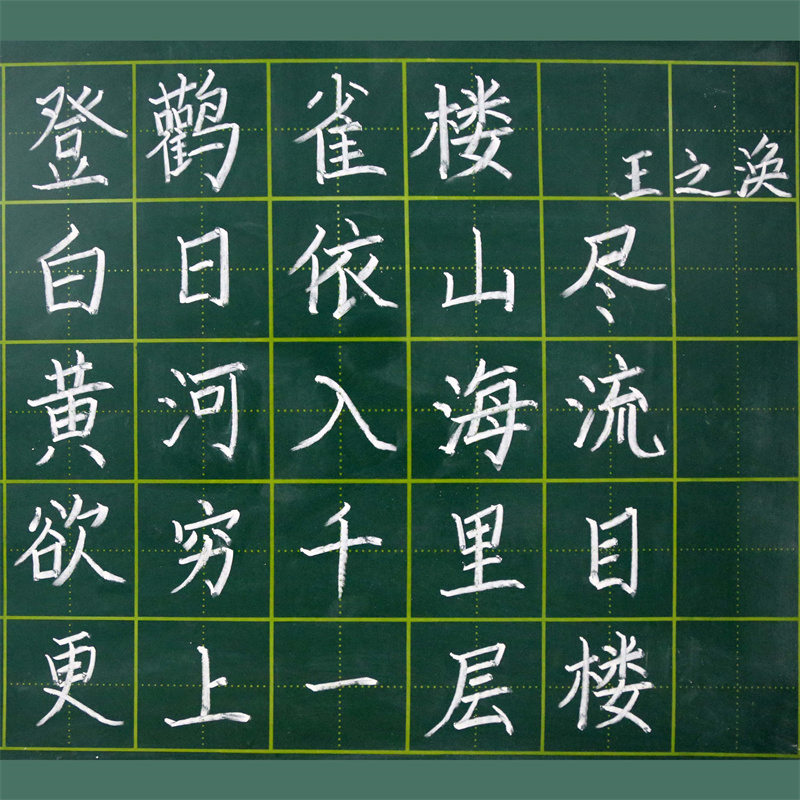 登鹳雀楼
王之涣
白日依山尽
黄河入海流
欲穷千里目
更上一层楼